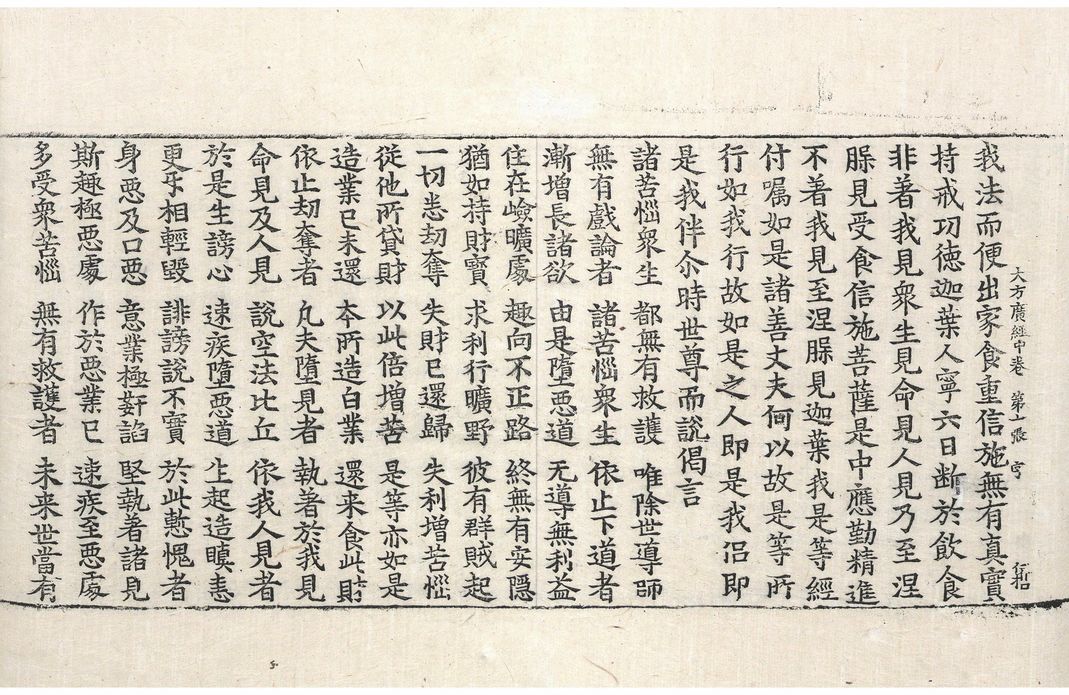 大方廣経中卷 第十張
我法而便出家食重信施無有真實
持戒功徳迦葉人寧六日断於飲食
非著我見衆生見命見人見乃至涅
槃見受食信施菩薩是中應勤精進
不著我見至涅槃見迦葉我是等經
付囑如是諸善丈夫何以故是等所
行如我行故如是之人即是我侣即
是我伴尒時世尊而說偈言
諸苦惱衆生 都無有救護 唯除世導師
無有戲論者 諸苦惱衆生 依止下道者
漸增長諸欲 由是墮惡道 无導無利益
住在嶮曠處 趣向不正路 終無有安隱
猶如持財寶 求利行曠野 彼有群賊起
一切悉劫奪 失財已還歸 失利增苦惱
從他所貸財 以此倍增苦 是等亦如是
造業已未還 本所造白業 還来食此財
依止劫奪者 凡夫墮見者 執著於我見
命見及人見 說空法比丘 依我人見者
於是生謗心 速疾墮惡道 上起造瞋恚
更互相輕毀 誹謗說不實 於此慙愧者
身惡及口惡 意業極姧諂 堅執著諸見
斯趣極惡處 作於惡業已 速疾至惡處
多受衆苦惱 無有救護者 未来世當有